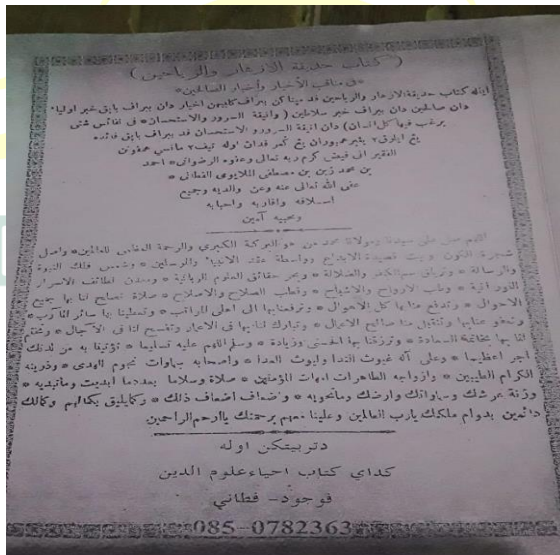 ( كتاب حديقة الازهار والرياحين )
* في مناقب الأخيار وأخبار الصالحين *
اينله كتاب حديقة الازهار والرياحين فد مپتاكن ببراف كلبيهن اخيار دان ببراف بايق خبر اولياء
دان صالحين دان ببراف خبر سلاطين ( وانيقة السرور والاستحسان * فى نفائس شتى
يرغب فيها كل انسان ) دان انيقة السرور والاستحسان فد ببراف بايق فائده
يڠ ايلوق٢ يڠ
الفقير الى فيض كرم ربه تعالى وعفوه الرضوانى * احمد
بن محمد زين بن مصطفى الملايوى الفطانى *
عفى الله تعالى عنه وعن والديه وجميع
اسلافه واقاربه واحبابه
ومحبيه آمين
اللهم صل على سيدنا ومولانا محمد من هو البركة الكبرى والرحمة العظمى للعالمين * واصل
شجرة الكون وبيت قصيدة الابداع وواسطة عقد الانبياء والمرسلين * وشمس فلك النبوة
والرسالة * وترياق سم الكفر والضلالة * وبحر حقائق العلوم الربانية * ومعدن لطائف الاسرار
النورانية * وطب الارواح والاشباح * وقطب الصلاح والاصلاح * صلاة تصلح لنا بها جميع
الاحوال * وتدفع عنا بها كل الاهوال * وترفعنا بها الى اعلى المراتب * وتعطينا بها سائر المآرب *
وتعفو عنا بها وتتقبل منا صالح الاعمال * وتبارك لنا بها فى الاعمار وتفسح لنا فى الآجال * وتختم
لنا بها بخاتمة السعادة * وترزقنا بها الحسنى وزيادة * وسلم اللهم عليه تسليما * تؤتينا به من لدنك
اجرا عظيما * وعلى آله غيوث الندا وليوث العدا * وأصحابه نجوم الهدى * وذريته
الكرام الطيبين * وازواجه الطاهرات امهات المؤمنين * صلاة وسلاما بعدد ما ابدعت وما تبديه *
وزنة عرشك وسمواتك وارضك وما تحويه * واضعاف اضعاف ذلك * وكما يليق بكمالهم وكمالك
دائمين بدوام ملكك يارب العالمين وعلينا معهم برحمتك ياارحم الراحمين
دتربيتكن اوله
كداي كتاب احياء علوم الدين
فوجود - فطاني
085-0782363